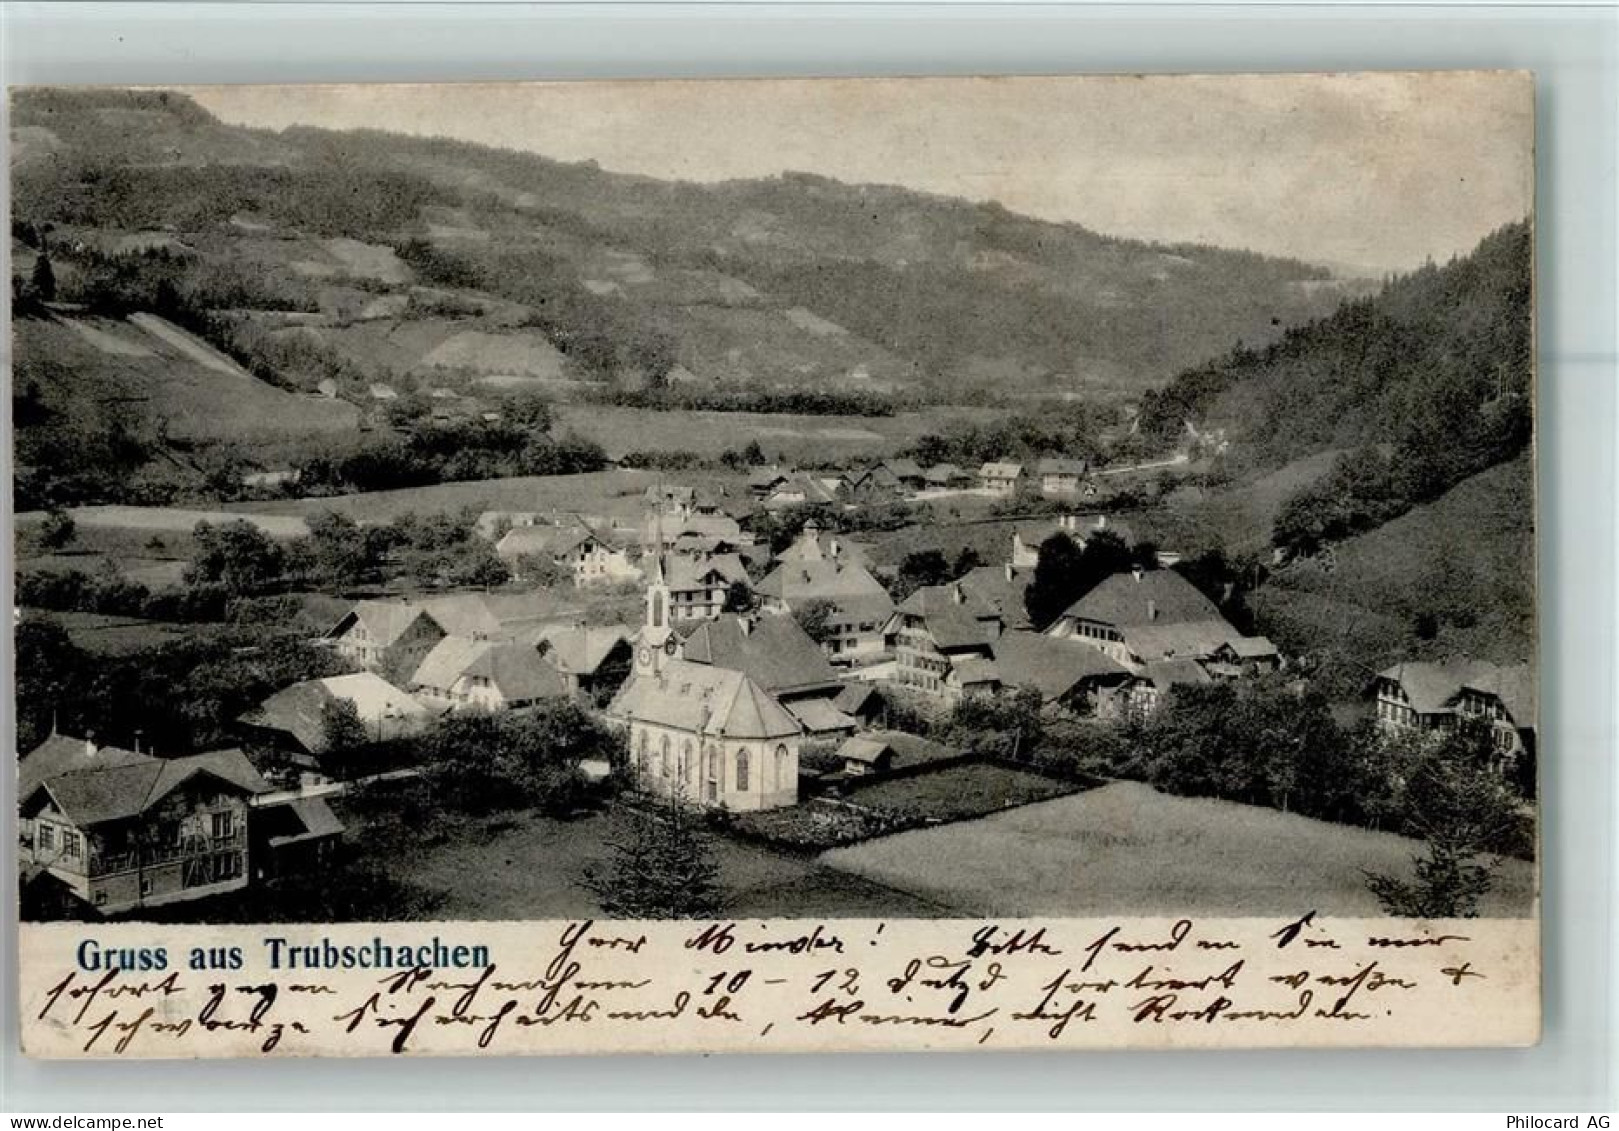 Gruss aus Trubschachen
Herr Minder! Bitte senden Sie mir
sofort gegen Nachnahme 10 - 12 Dutzd sortiert weiße &
schwarze Sicherheitsnadeln, kleinere, nicht Rocknadeln.
www.delcampe.net
Philocard AG